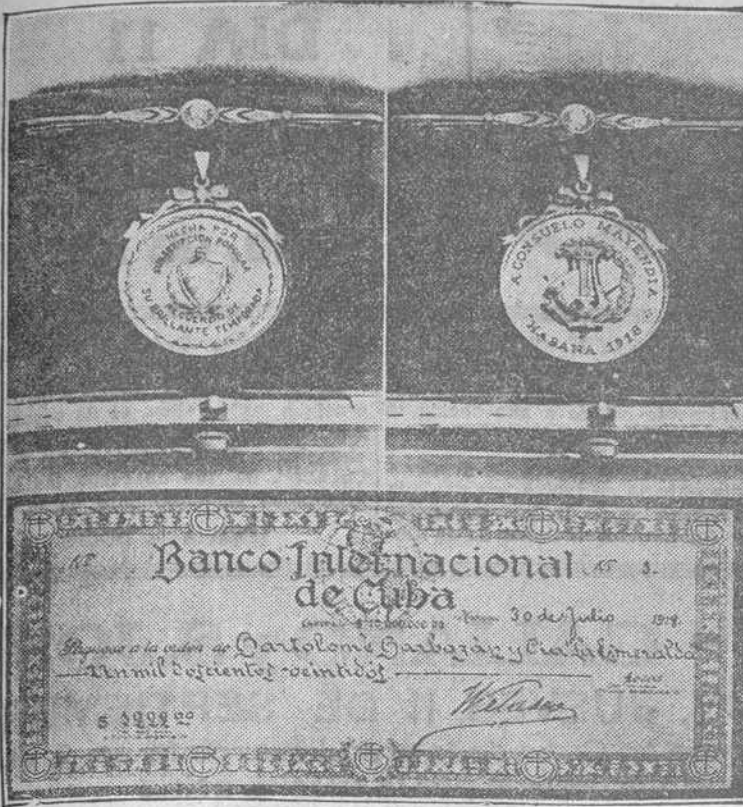 HECHA POR
SUSCRIPCION POPULAR
RECUERDO DE
SU BRILLANTE TEMPORADA
A CONSUELO MAYENDIA
HABANA 1918
Banco Internacional
de Cuba
30 de Julio 191
Páguese a la orden de Bartolomé Barbazán y Cia La Esmeralda
Un mil doscientos veintidos
$